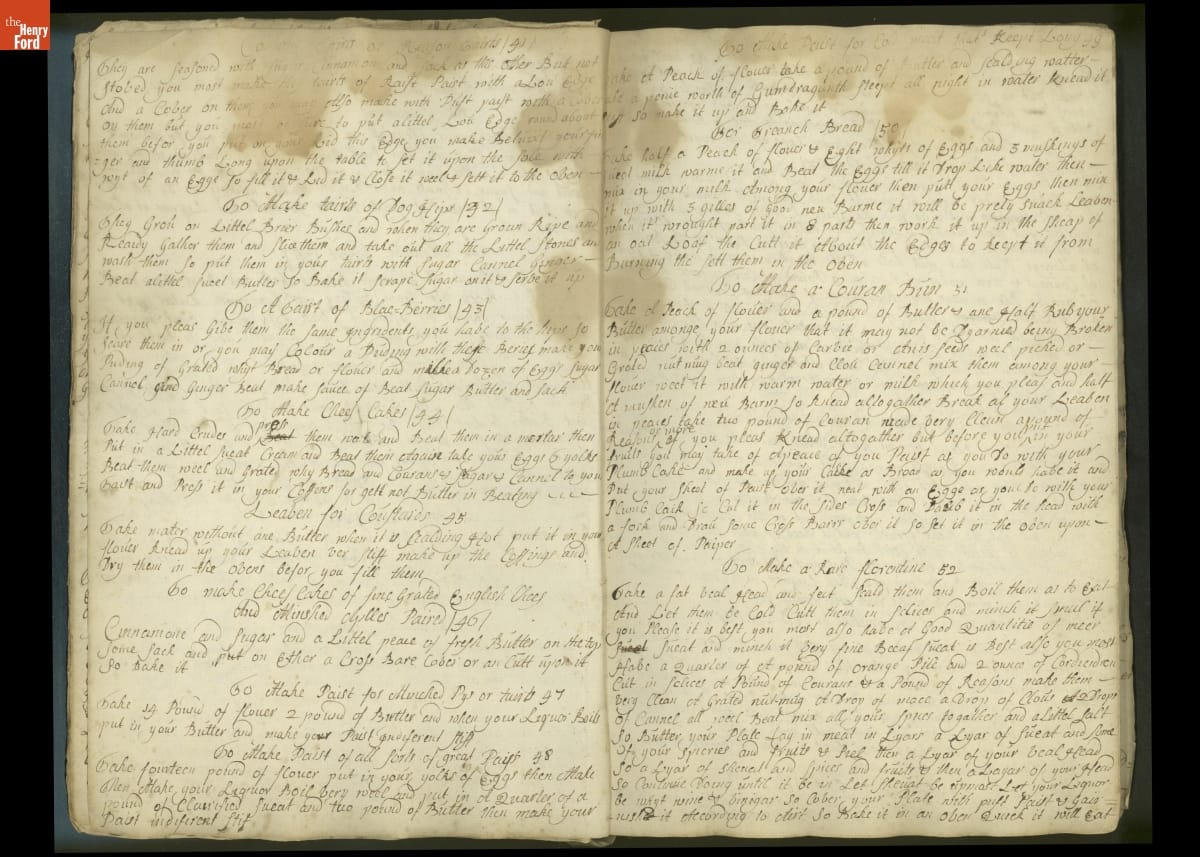 the Henry Ford
tairts or Reason tairts |41|
They are seasoned with Cinnamon and sack as the other But not
Stoved you most make tairts of Raist Paist with a Lou Edge
And a Cober on them you may Also make with Pust paist with a Cober
on them but you most to put alittel Lou Edge round about
them before you put on your Lid this Edge you make Betuixt your fin
=ger and thumb Long upon the table to set it upon the sole with
whyt of an Egge So fill it & Lid it & Close it weel & sett it to the oben
To Make tairts of Dog Hips |32|
They Groh on Littel Brier Bushes and when they are Groun Ripe and
Ready Gather them and Slice them and take out all the Littel Stones an
wash them so put them in your tairts with sugar Cannel Ginger
Beat alittel sweet Butter So Bake it Scrape Sugar on it & serbe it up
To A taist of Blae-Berries |43|
If you pleas Gibe them the same ingridents you habe to the hips so
serve them in or you may Colour a Puding with these Beries make you
Puding of Grated whyt Bread or flower and make a dozen of Eggs Sugar
Cannel and Ginger Beat make sauce of Beat Sugar Butter and Sack
To Make Chess Cakes |44|
Take Hard Crudes and press them weel and Beat them in a mortar then
Put in a Littel sweat Cream and Beat them Againe take your Eggs 6 yolks
Beat them weel and Grated why Bread and Courans & Sugar & Cannel to you
taist and Press it in your Coffens for gett not Butter in Beating
Leaben for Coustards 45
Take water without ane Butter when it is scalding Hot put it in your
flower knead up your Leaben ver stiff make up the Coffings and
Dry them in the obens befor you fill them
To make Chees Cakes of fine Grated English Chees
And Minshed Aplles Paired |46|
Cinnamone and Sugar and a Littel peace of fresh Butter on the top
Some Sack and put on Ether a Cross Bare Cober or an Cutt upon it
So Bake it
To Make Paist for Minched Pys or tairts 47
Take 14 Pound of flower 2 pound of Butter and when your Liquor Boils
put in your Butter and make your Paist indiferent stiff
To Make Paist of all Sorts of great Paist 48
Take fourteen pound of flower put in your yolks of Eggs then Make
then Make your Liquor Boil bery weel and put in A Quarter of a
pound of Clairified Sweat and two pound of Butter then make your
Paist indiferent stif
To Make Paist for Cold meat that Keept Long 49
Take A Peack of flower take a pound of Butter and scalding watter
take a penie worth of Gumdragunth sleept all night in water Knead it
So make it up and Bake it
For Freanch Bread |50|
Take half a Peach of flower & Eight whyts of Eggs and 3 muskings of
sweet milk warme it and Beat the Eggs till it Drop Like water then
mix in your milk Among your flower then putt your Eggs then mix
it up with 3 gilles of Good new Barme it will be prety Snack Leaben
when it wrought part it in 8 parts then work it up in the sheap of
an oal Loaf the Cutt it About the Edges to keept it from
Burning the sett them in the Oben
To Make a Couran Bun 51
Take A Peach of flower and a pound of Butter & ane Half Rub your
Butter amonge your flower that it may not be Dearnid being Broken
in peaces with 2 ounces of Carbie or Anis seeds weel picked or
Grated nutmug beat ginger and Clou Cannel mix them among your
flower weet it with warm water or milk which you pleas and half
A musken of new Barm so Knead altogather Break al your Leaben
in peaces take two pound of Couran made bery Clean a pound of
Reasons or more if you pleas Knead altogather but before you put in your
fruits you may take of A peace of you Paist as you Do with your
Plumb Cake and make up your Cake as Broad as you would habe it and
Put your sheet of Paist ober it neat with an Egge as you Do with your
Plumb Caik so Cut it in the sides Cross and Jabb it in the head with
a fork and Drau some Cross Barrs ober it so set it in the oben upon
A Sheet of Peiper
To Make a Rare florentine 52
Take a fat beal Head and feet scald them and Boil them as to Eat
And Let them be Cold Cutt them in sclices and minsh it Smal if
you Please it is best you most also habe A Good Quantitie of
Sueat and minch it bery fine Beeaf sueat is Best also you most
Habe a Quarter of A pound of Orange Pile and 2 ounce of
Cutt in sclices A Pound of Courans & a Pound of Reasons make them
bery Clean A Grated nutmug A Drop of mace a Drop of Clous A 2 Drops
of Cannel all weel Beat mix all your Spices together and a Littel Salt
So Butter your Plate Lay in meat in Lyars a Lyar of Sueat and some
of your spiceries and fruits & Peel then a Lyar of your beal Head
So a Lyar of and spices and fruits & then a Layar of your Head
So Continue Doing until it be in Let sheuat be upmost Let your Liquor
be whyt wine & binigar So Cober your Plate with puft Paist & Gair=
=nish it According to Airt So Bake it in an oben Quick it will Eat